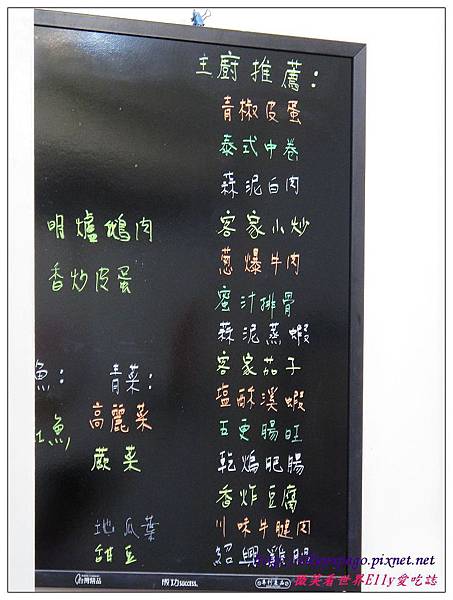 主廚推薦：
青椒皮蛋
泰式中卷
蒜泥白肉
客家小炒
蔥爆牛肉
蜜汁排骨
蒜泥蒸蝦
客家茄子
塩酥溪蝦
五更腸旺
乾煸肥腸
香炸豆腐
川味牛腿肉
紹興雞
明爐鵝肉
香炒皮蛋
魚：
青菜：
高麗菜
魚
蕨菜
地瓜葉
甜豆
成功 SUCCESS
專利產品
.pixnet.net
微笑看世界Elly愛吃誌